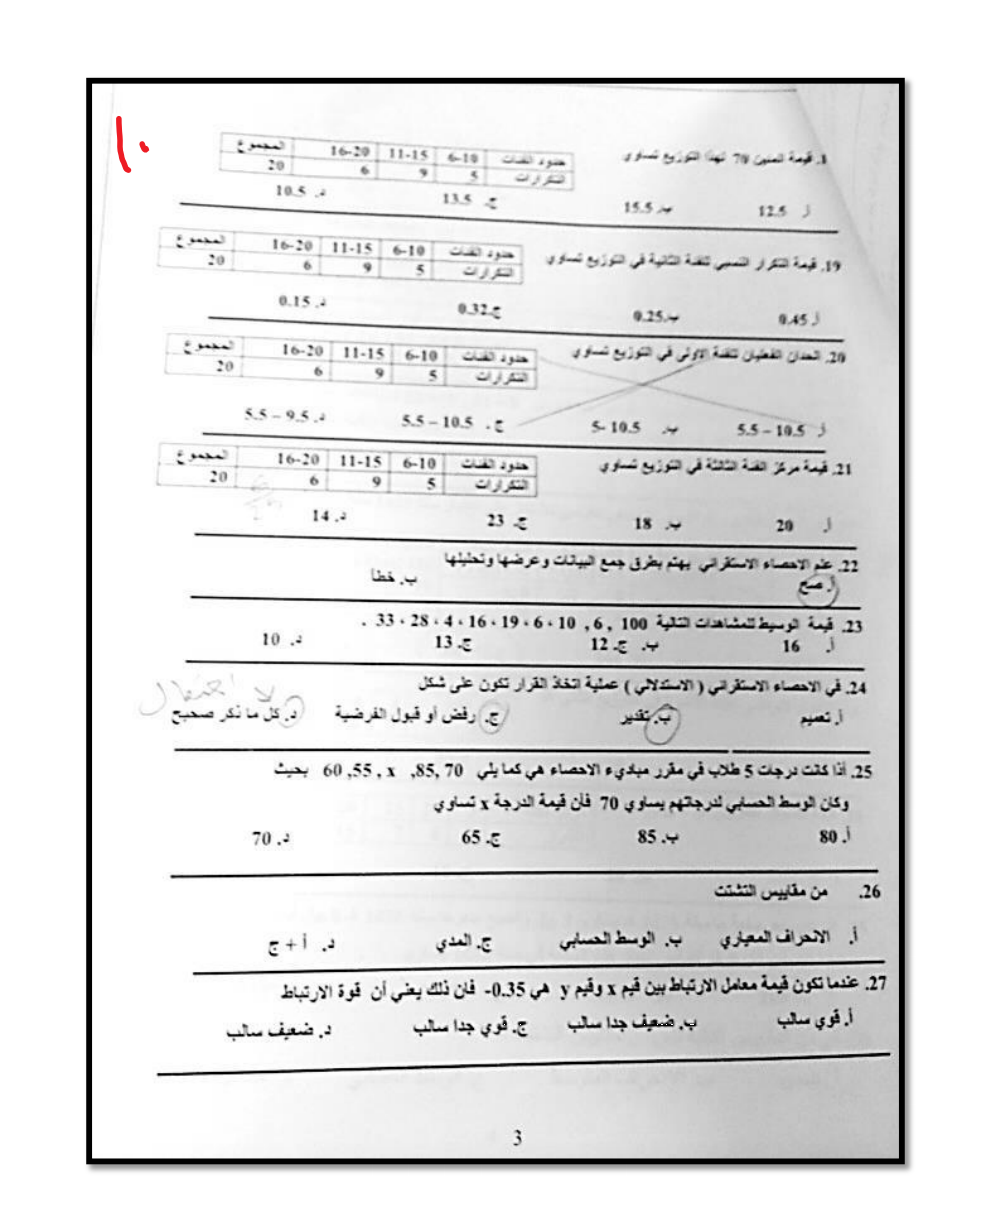 ١٠
1. قيمة المئين 70 لهذا التوزيع تساوي
حدود الفئات 6-10 11-15 16-20 المجموع
التكرارات 5 9 6 20
أ 12.5 ب. 15.5 ج. 13.5 د. 10.5
19. قيمة التكرار النسبي للفئة الثانية في التوزيع تساوي
حدود الفئات 6-10 11-15 16-20 المجموع
التكرارات 5 9 6 20
أ. 0.45 ب. 0.25 ج. 0.32 د. 0.15
20. الحدان الفعليان للفئة الاولى في التوزيع تساوي
حدود الفئات 6-10 11-15 16-20 المجموع
التكرارات 5 9 6 20
أ. 10.5 – 5.5 ب. 10.5 -5 ج. 10.5 – 5.5 د. 9.5 – 5.5
21. قيمة مركز الفئة الثالثة في التوزيع تساوي
حدود الفئات 6-10 11-15 16-20 المجموع
التكرارات 5 9 6 20
أ. 20 ب. 18 ج. 23 د. 14
22. علم الاحصاء الاستقرائي يهتم بطرق جمع البيانات وعرضها وتحليلها
أ. صح ب. خطأ
23. قيمة الوسيط للمشاهدات التالية 100 , 6, 10 ، 6 ، 19 ، 16 ، 4 ، 28 ، 33 .
أ. 16 ب. ج. 12 ج. 13 د. 10
24. في الاحصاء الاستقرائي ( الاستدلالي ) عملية اتخاذ القرار تكون على شكل
أ. تعميم ب. تقدير ج. رفض أو قبول الفرضية د. كل ما ذكر صحيح
25. أذا كانت درجات 5 طلاب في مقرر مباديء الاحصاء هي كما يلي 70 ,85, x , 55, 60 بحيث
وكان الوسط الحسابي لدرجاتهم يساوي 70 فأن قيمة الدرجة x تساوي
أ. 80 ب. 85 ج. 65 د. 70
26. من مقاييس التشتت
أ. الانحراف المعياري ب. الوسط الحسابي ج. المدي د. أ + ج
27. عندما تكون قيمة معامل الارتباط بين قيم x وقيم y هي 0.35- فان ذلك يعني أن قوة الارتباط
أ. قوي سالب ب. ضعيف جدا سالب ج. قوي جدا سالب د. ضعيف سالب
3